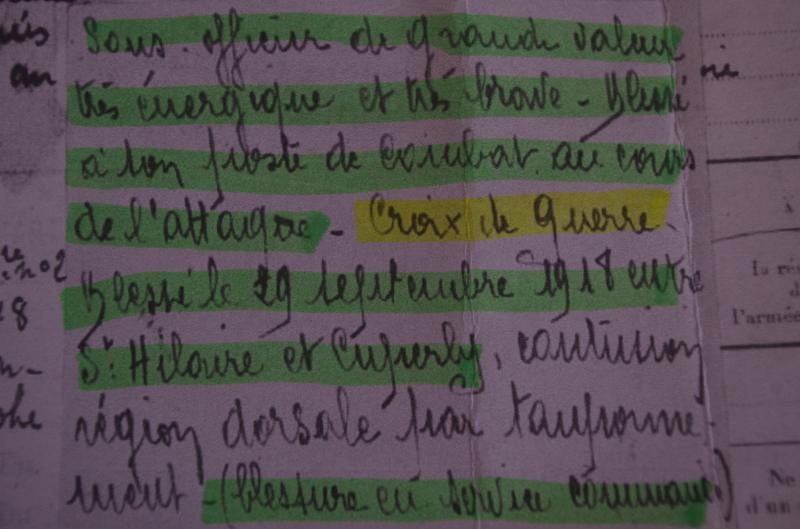 Sous-officier de grande valeur
très énergique et très brave - Blessé
à son poste de combat au cours
de l'attaque - Croix de Guerre.
Blessé le 29 septembre 1918 entre
St Hilaire et Cuperly, contusion
région dorsale par tamponne-
ment - (blessure en service commandé)